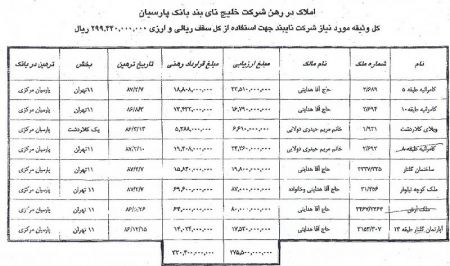 املاک در رهن شرکت خلیج نای بند بانک پارسیان
کل وثیقه مورد نیاز شرکت نایبند جهت استفاده از کل سقف ریالی و ارزی ۲۹۹,۴۳۰,۰۰۰,۰۰۰ ریال
نام شماره ملک نام مالک مبلغ ارزیابی مبلغ قرارداد رهنی تاریخ ترهین بخش ترهین در بانک
کامرانیه طبقه ۵ ۲/۶۸۹ حاج آقا هدایتی ۲۳,۵۱۰,۰۰۰,۰۰۰ ۱۸,۸۰۸,۰۰۰,۰۰۰ ۸۷/۲/۷ ۱۱تهران پارسیان مرکزی
کامرانیه طبقه ۱۰ ۲/۶۹۴ حاج آقا هدایتی ۱۶,۷۹۰,۰۰۰,۰۰۰ ۱۳,۴۳۲,۰۰۰,۰۰۰ ۱۱تهران پارسیان مرکزی
ویلای کلاردشت ۱/۹۳۱ خانم مریم حیدری دولابی ۶,۶۱۰,۰۰۰,۰۰۰ ۵,۲۸۸,۰۰۰,۰۰۰ ۸۶/۳/۱۳ یک کلاردشت پارسیان مرکزی
کامرانیه طبقه ۸ ۲/۶۹۲ خانم مریم حیدری دولابی ۲۴,۲۶۰,۰۰۰,۰۰۰ ۱۹,۴۰۸,۰۰۰,۰۰۰ ۱۱تهران پارسیان مرکزی
ساختمان گلناز ۳۳۳۷/۲۲۵ حاج آقا هدایتی ۱۹,۸۰۰,۰۰۰,۰۰۰ ۱۵,۸۴۰,۰۰۰,۰۰۰ ۸۷/۲/۷ ۱۱ تهران پارسیان مرکزی
ملک کوچه نیلوفر حاج آقا هدایتی وخانواده ۸۷,۰۰۰,۰۰۰,۰۰۰ ۶۹,۶۰۰,۰۰۰,۰۰۰ ۸۷/۲/۷ ۱۱ تهران پارسیان مرکزی
ملک حاج آقا هدایتی ۸۰,۰۰۰,۰۰۰,۰۰۰ ۶۴,۰۰۰,۰۰۰,۰۰۰ ۱۱ تهران پارسیان مرکزی
آپارتمان گلناز طبقه ۱۴ ۳۱۵۳/۳۰۷ حاج آقا هدایتی ۱۷,۵۳۰,۰۰۰,۰۰۰ ۱۴,۰۲۴,۰۰۰,۰۰۰ ۸۶/۱۲/۱۵ ۱۱ تهران پارسیان مرکزی
۲۷۵,۵۰۰,۰۰۰,۰۰۰ ۲۲۰,۴۰۰,۰۰۰,۰۰۰